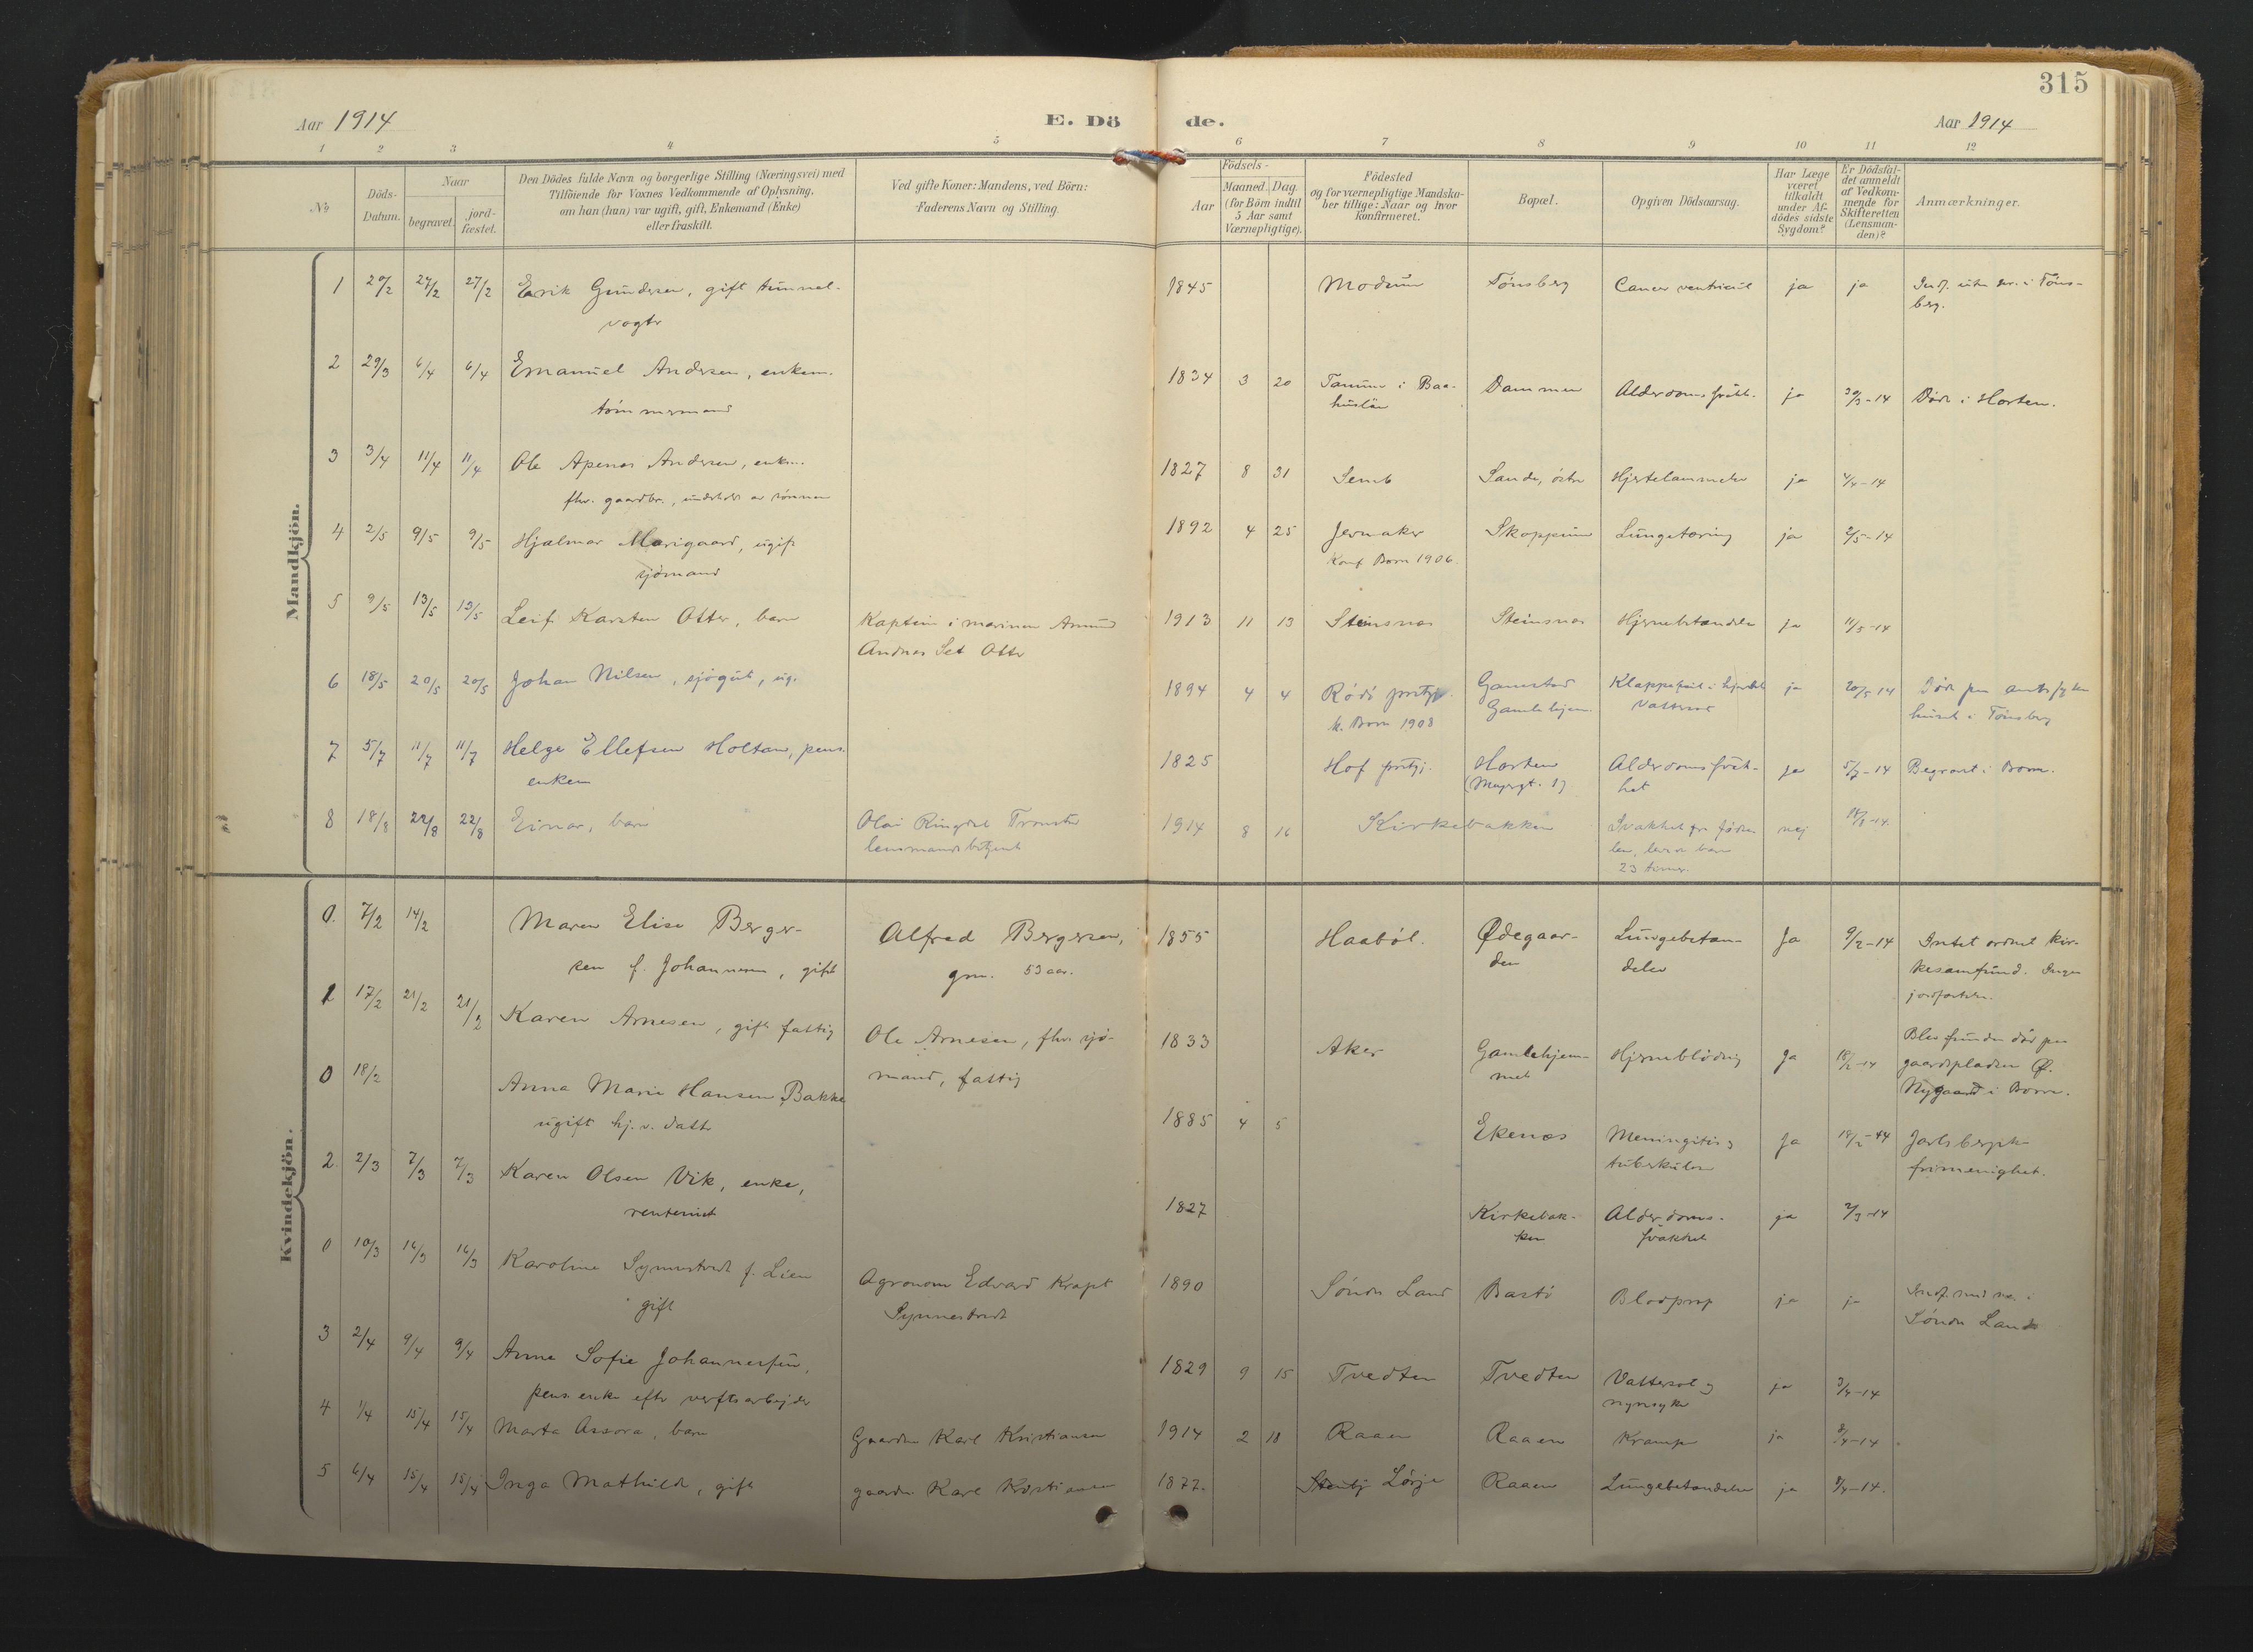 315
Aar 1914
E. Dö
de.
Aar 1914
1 2 3 4 5 6 7 8 9 10 11 12
No
Döds-
Datum.
Naar
begravet.
jord-
fæstet.
Den Dödes fulde Navn og borgerlige Stilling (Næringsvei) med
Tilföiende for Voxnes Vedkommende af Oplysning,
om han (hun) var ugift, gift, Enkemand (Enke)
eller fraskilt.
Ved gifte Koner: Mandens, ved Börn:
Faderens Navn og Stilling.
Födsels-
Aar
Maaned. Dag.
(for Börn indtil
5 Aar samt
Værnepligtige).
Födested
og for værnepligtige Mandska-
ber tillige: Naar og hvor
konfirmeret.
Bopæl.
Opgiven Dödsaarsag.
Har Læge
været
tilkaldt
under Af-
dödes sidste
Sygdom?
Er Dödsfal-
det anmeldt
af Vedkom-
mende for
Skifteretten
(Lensman-
den)?
Anmærkninger.
Mandkjön.
1 20/2 27/2 27/2 Erik Gundersen, gift tunnel-
vogter
1845 Modum Tønsberg Cancer ventricul ja ja
Tøns-
berg.
2 29/3 6/4 6/4 Emanuel Andersen, enkem.
tømmermand
1834 3 20 Tanum i Baa-
huslän
Dammen Alderdomssvakh. ja 30/3-14 Døde i Horten.
3 3/4 11/4 11/4 Ole Apenes Andersen, enkem.
fhv. gaardbr., underholdt av sønnen
1827 8 31 Semb Sande, östre Hjertelammelse ja 4/4-14
4 2/5 9/5 9/5 Hjalmar Marigaard, ugift
sjömand
1892 4 25 Jernaker
Konf Borre 1906.
Skoppum Lungetæring ja 2/5-14
5 9/5 13/5 13/5 Leif Karsten Otter, barn
Kaptein i marinen Amund
Andreas Otter
1913 11 13 Steinsnes Steinsnes Hjernebetændelse ja 11/5-14
6 18/5 20/5 20/5 Johan Nilsen, sjøgut, ug.
1894 4 4 Rödö prstgj.
k. Borre 1908
Gannestad
Gamlehjem.
Klappefeil i hjertet
Vattersot
ja 20/5 14 Døde paa amtssyke
huset i Tønsberg
7 5/7 11/7 11/7 Helge Ellefsen Holtan, pens.
enkem
1825 Hof prstgj. Horten
Alderdomssvak-
het
ja 5/7-14 Begravet i Borre.
8 18/8 22/8 22/8 Einar, barn
Olai Ringdal Tronstad
lensmandsbetjent
1914 8 16 Kirkebakken Svakhet fra føde
len, levde bare
23 timer.
nej 18/8-14.
Kvindekjön.
0. 7/2 14/2 Maren Elise Berger-
sen f. Johannesen, gift
Alfred Bergersen,
grn. 53 aar.
1855 Haaböl. Ødegaar-
den
Lungebetæn-
delse
Ja 9/2-14 Intet ordnet kir-
kesamfund. Ingen
jordfæstelse.
1 17/2 21/2 21/2 Karen Arnesen, gift fattig
Ole Arnesen, fhv. sjö-
mand, fattig
1833 Aker Gamlehjem-
met
Hjerneblödning Ja 18/2-14
Blev funden död paa
gaardspladsen Ø.
Nygaard i Borre.
0 18/2 Anna Marie Hansen Bakke
ugift hj. v. datter
1885 4 5 Ekenæs Meningitis
tuberkulose
Ja 18/2-14 Jarlsberg
frimenighet.
2. 2/3 7/3 7/3 Karen Olsen Vik, enke,
rentenist
1827 Kirkebak-
ken
Alderdoms-
svakhet
ja 2/3-14
0 10/3 16/3 16/3 Karoline Synnestvedt f. Lien
gift
Agronom Edvard Kraft
Synnestvedt
1890 Söndre Land Bastö Blodprop ja ja
Söndre Land
3 2/4 9/4 9/4 Anne Sofie Johannesen,
pens. enke efter verftsarbejder
1829 9 15 Tvedten Tvedten Vattersot
nyresyke
ja 3/4-14
4 1/4 15/4 15/4 Marta Assora, barn
Gaardbr. Karl Kristiansen
1914 2 18 Raaen Raaen Krampe ja 8/4-14
5 6/4 15/4 15/4 Inga Mathilde, gift
gaardbr. Karl Kristiansen
1877. Lørje Raaen Lungebetændelse ja 8/4-14.